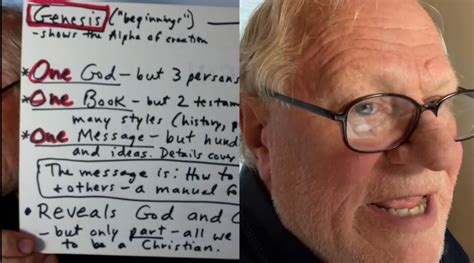 Genesis ("beginnings")
-shows the Alpha of creation
*One God - but 3 persons
*One Book - but 2 testa
many styles (history, p
*One Message - but hun
and ideas. Details cover
The message is: How to
+ others - a manual fo
• Reveals God and
- but only part - all we
to be a Christian.